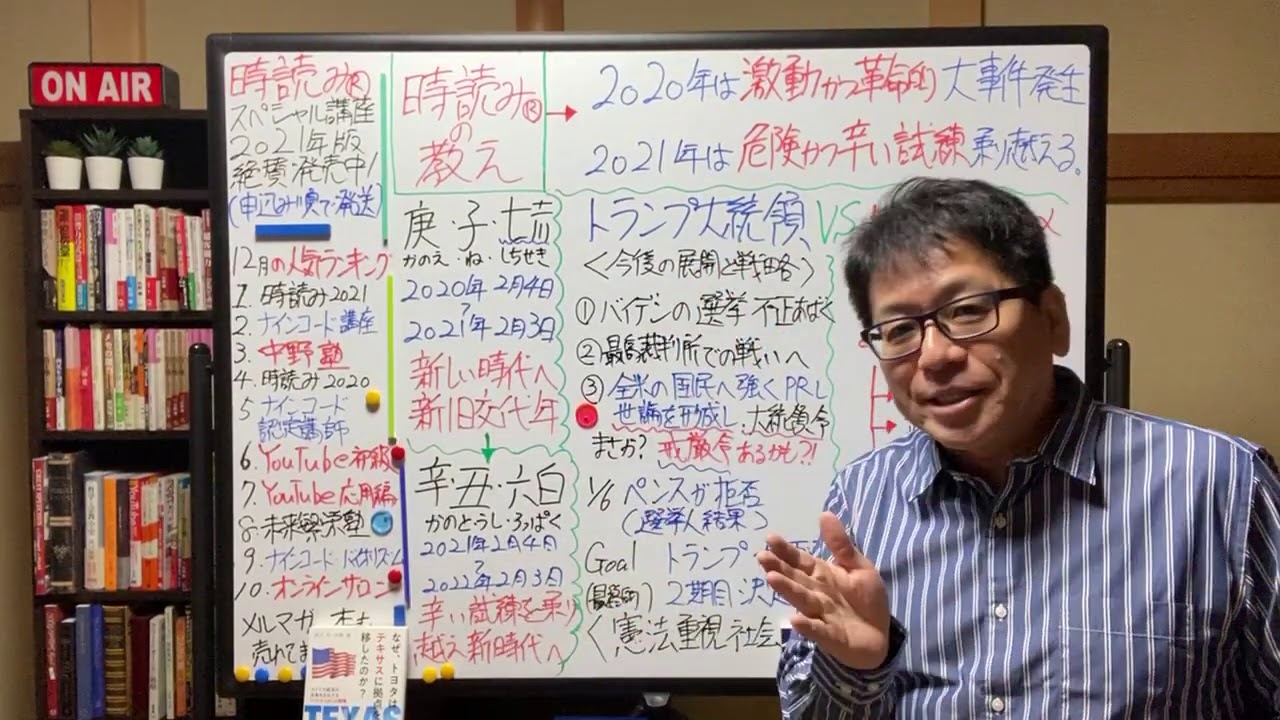 ON AIR
時読み®
スペシャル講座
2021年版
絶賛・発売中!
(申込み順で発送)
12月の人気ランキング
1. 時読み2021
2. ナインコード講座
3. 中野塾
4. 時読み2020
5 ナインコード
認定講師
6. YouTube初級
7. YouTube応用編
8. 未来経済塾
9 ナインコードバイオリズム
10. オンラインサロン
メルマガ
売れてま
時読み®
の
教え
庚・子・七赤
かのえ・ね・しちせき
2020年2月4日
~
2021年2月3日
新しい時代へ
新旧交代年
辛・丑・六白
かのとうし・ろっぱく
2021年2月4日
~
2022年2月3日
辛い試練を乗り
越え新時代へ
2020年は激動かつ革命的大事件発生
2021年は危険かつ辛い試練乗り越える。
トランプ大統領 VS
<今後の展開と戦略>
①バイデンの選挙不正あばく
②最高裁判所での戦いへ
③全米の国民へ強くPRし
世論を形成し、大統領令
まさか?戒厳令あるかも?!
1/6 ペンスが拒否
(選挙人結果)
Goal トランプ
(最終的) 2期目決定
<憲法重視社会
なぜ、トヨタは
テキサスに拠点を
移したのか?
TEXAS